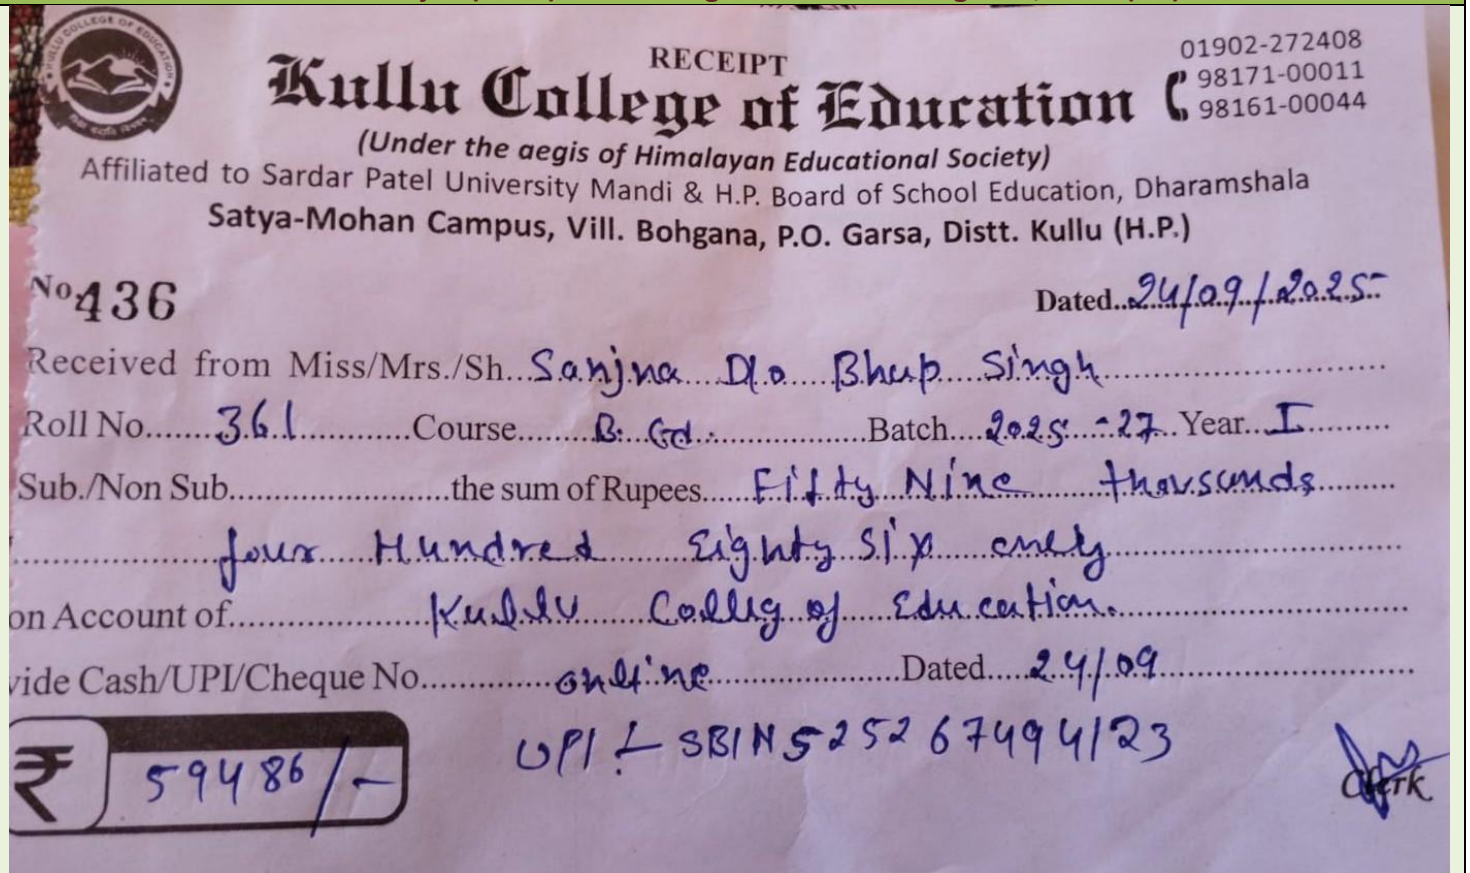 KULLU COLLEGE OF EDUCATION
RECEIPT
Kullu College of Education
01902-272408
98171-00011
98161-00044
(Under the aegis of Himalayan Educational Society)
Affiliated to Sardar Patel University Mandi & H.P. Board of School Education, Dharamshala
Satya-Mohan Campus, Vill. Bohgana, P.O. Garsa, Distt. Kullu (H.P.)
No 436 Dated..24/09/2025
Received from Miss/Mrs./Sh...Sanjna D/o Bhup Singh
Roll No.......361...........Course.......B. Ed...............Batch....2025-27..Year..I
Sub./Non Sub......................the sum of Rupees.....Fifty Nine thousands
four Hundred Eighty Six only
on Account of....................Kullu Collig of Education.
vide Cash/UPI/Cheque No.............online...................Dated.....24/09
UPI :- SBIN525267494123
₹ 59486/-
Clerk